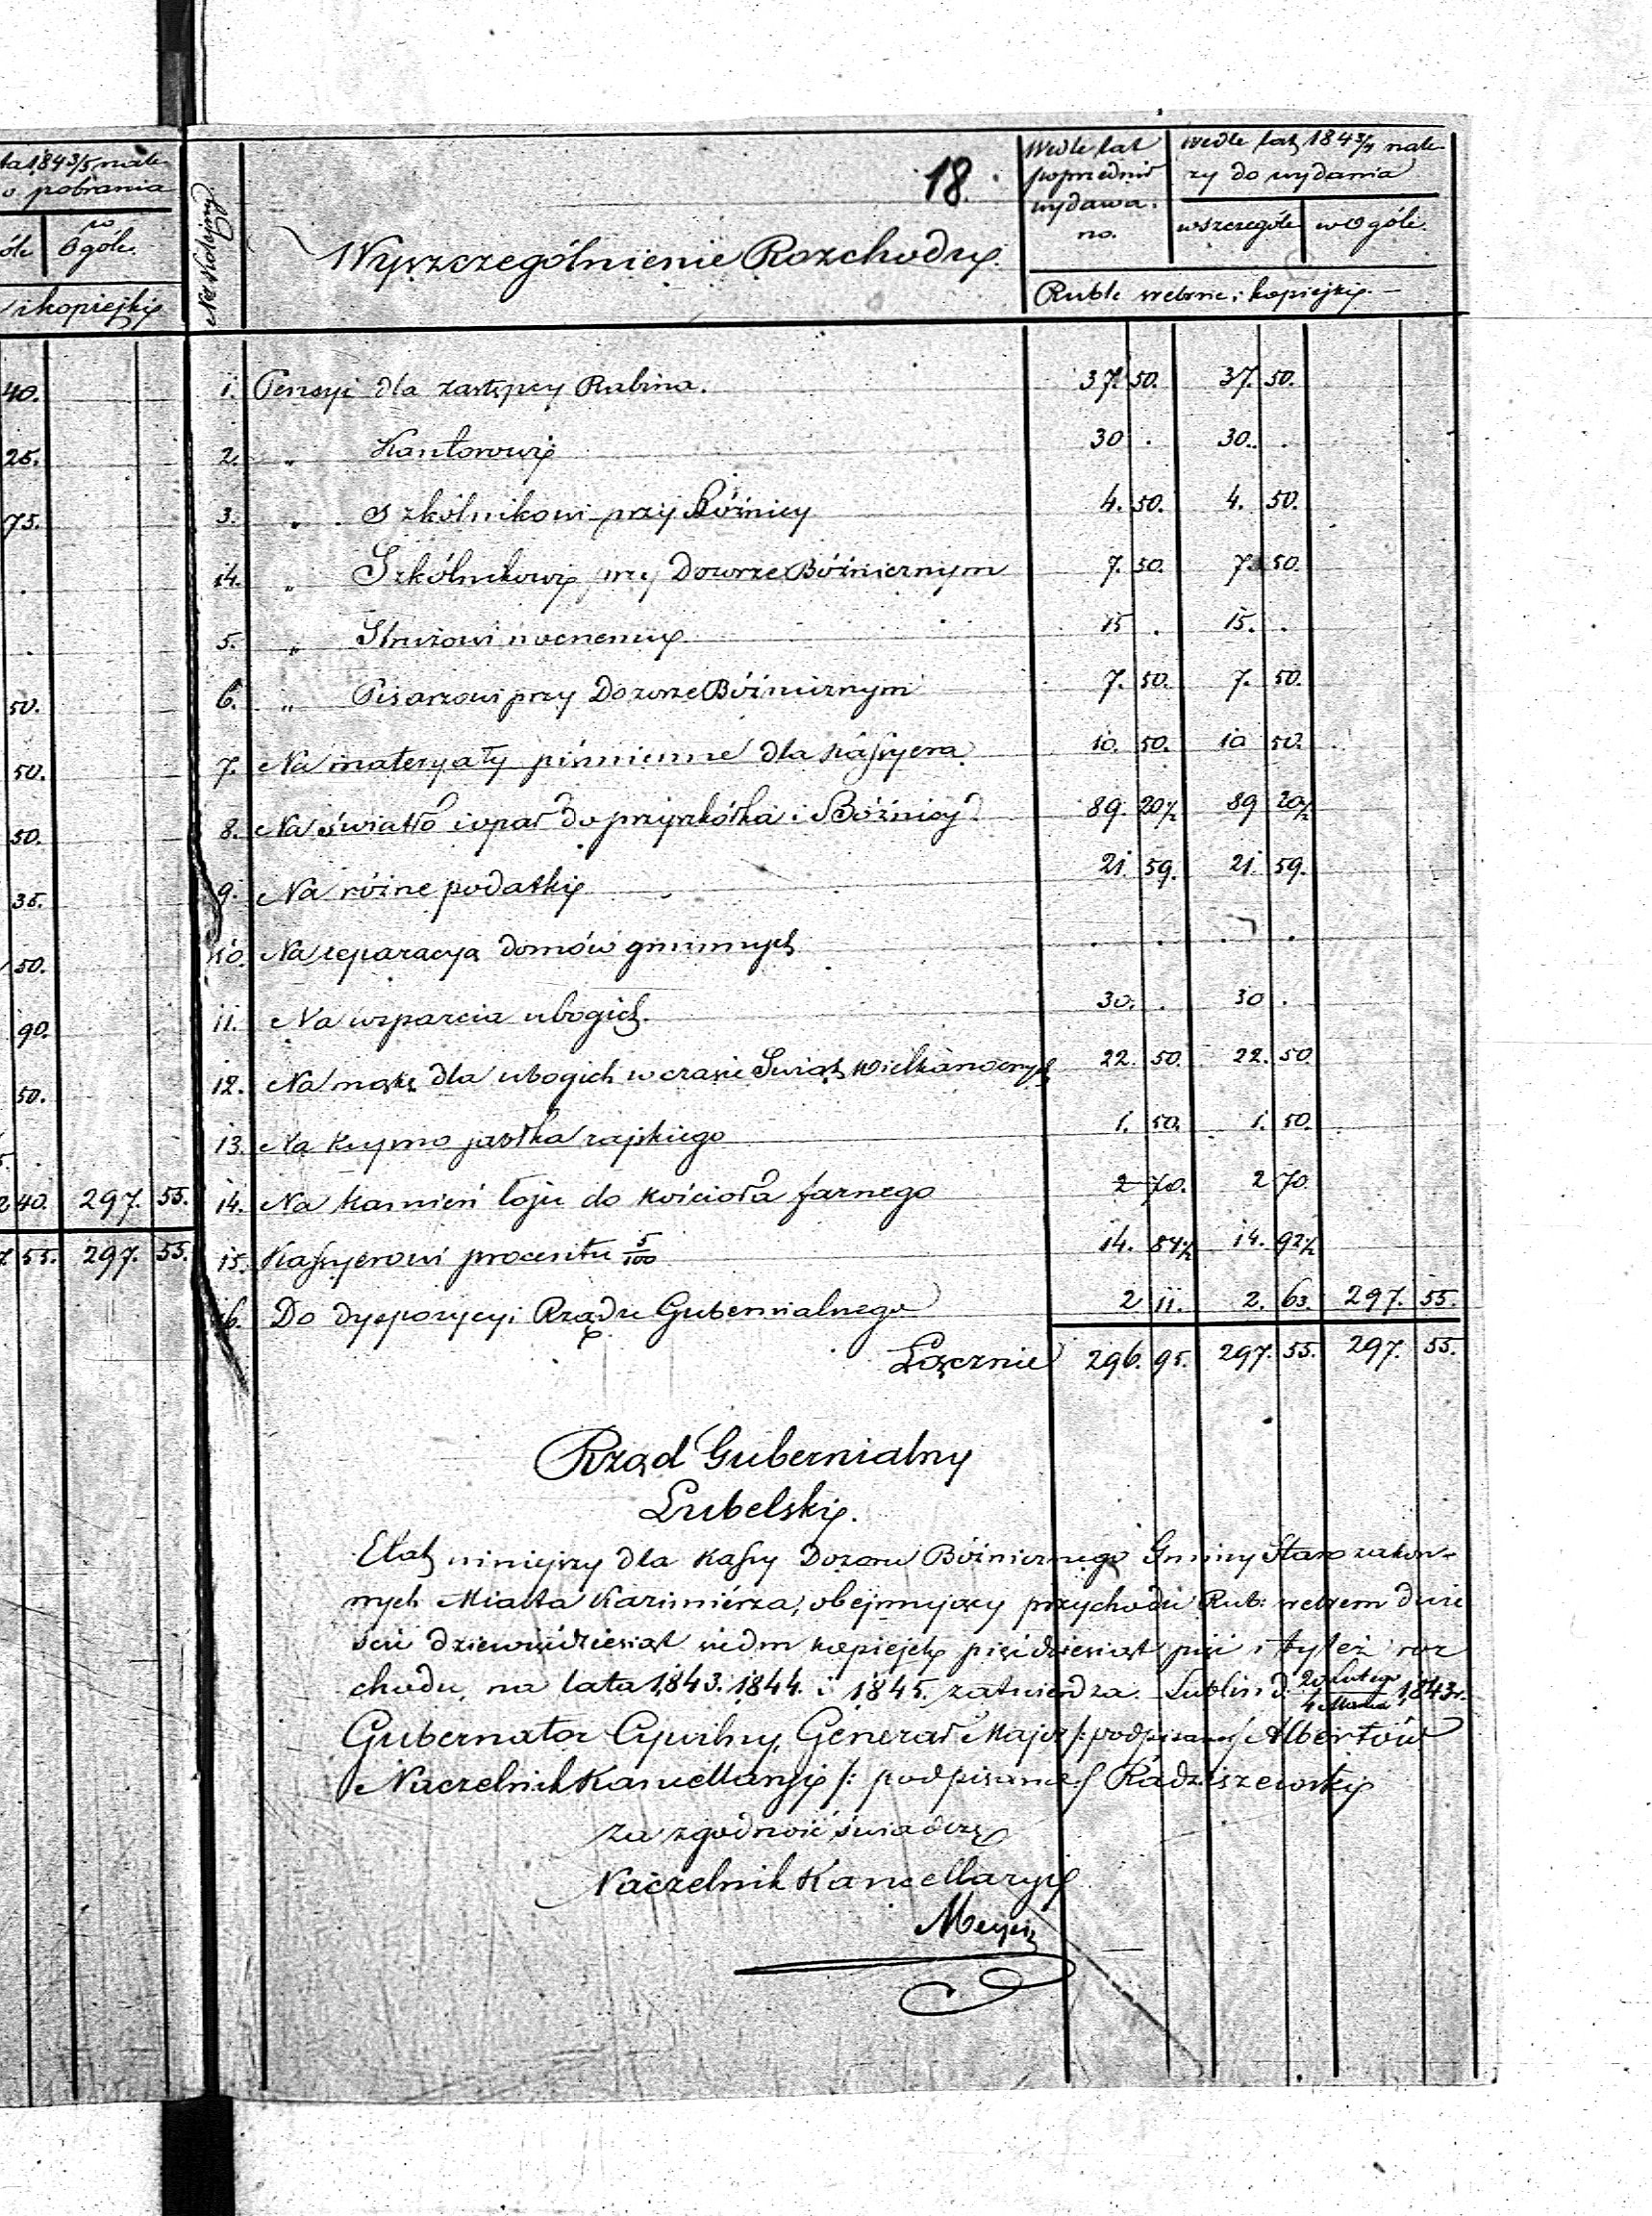 ta 1843/5 nale-
o pobrania
óle
w Ogóle.
i kopiejki
40.
25.
75.
50.
50.
50.
35.
50.
90.
50.
40. 297. 55.
55. 297. 55.
18.
No Kolejny
Wyszczególnienie Rozchodu.
Wedle lat poprzednio wydawa-no.
Wedle lat 1843/5 nale-
ży do wydania
w szczególe
w Ogóle.
Ruble srebrne i kopiejki.
1. Pensyi dla zastępcy Rabina. 37. 50. 37. 50.
2. „ Kantorowi 30 . 30. .
3. „ Szkólnikowi przy Bóżnicy 4. 50. 4. 50.
4. „ Szkólnikowi przy Dozorze Bóżnicznym 7. 50. 7. 50.
5. „ Stróżowi nocnemu 15 . 15. .
6. „ Pisarzowi przy Dozorze Bóżnicznym 7. 50. 7. 50.
7. Na materyały piśmienne dla Kassyera 10. 50. 10 50.
8. Na światło i opał do przyszkółka i Bóżnicy 89. 20½ 89 20½
9. Na różne podatki 21 59. 21. 59.
10. Na reparacyą domów gminnych . . . .
11. Na wsparcia ubogich. 30. . 30 .
12. Na mąkę dla ubogich w czasie Świąt Wielkanocnych 22. 50. 22. 50.
13. Na kupno jabłka rajskiego 1. 50. 1. 50.
14. Na kamień łoju do kościoła farnego 2 70. 2 70.
15. Kassyerowi procentu 5/100 14. 84½ 14. 92½
16. Do dyspozycyi Rządu Gubernialnego 2 11. 2. 63. 297. 55.
Łącznie 296. 95. 297. 55. 297. 55.
Rząd Gubernialny
Lubelski.
Etat niniejszy dla Kassy Dozoru Bóżnicznego Gminy Starozakon-
nych Miasta Kazimierza, obejmujący przychodu Rub: srebrem dwie
ście dziewięćdziesiąt siedm kopiejek pięćdziesiąt pięć i tyleż roz
chodu, na lata 1843. 1844. i 1845. zatwierdza. Lublin d. 20 Lutego/4 Marca 1843 r.
Gubernator Cywilny, Generał Major /: podpisano:/ Albertów
Naczelnik Kancellaryi /: podpisano:/ Radziszewski
Za zgodność świadczę
Naczelnik Kancellaryi